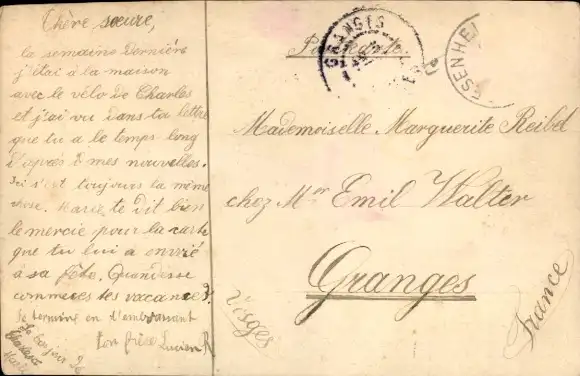 Chère sœure,
la semaine dernière
j'étai à la maison
avec le vélo de Charles
et j'ai vu dans ta lettre
que tu a le temps long
d'après mes nouvelles.
Ici s'est toujours la même
chose. Marie te dit bien
le mercie pour la carte
que tu lui a envoié
à sa fête. Quand esse
commences tes vacances?
Je termine en t'embrassant
ton frère Lucien R
le bonjour de
Charles et
Marie
Postkarte.
GRANGES
SSENHEI
Mademoiselle Marguerite Reibel
chez Mr Emil Walter
Granges
Vosges
France